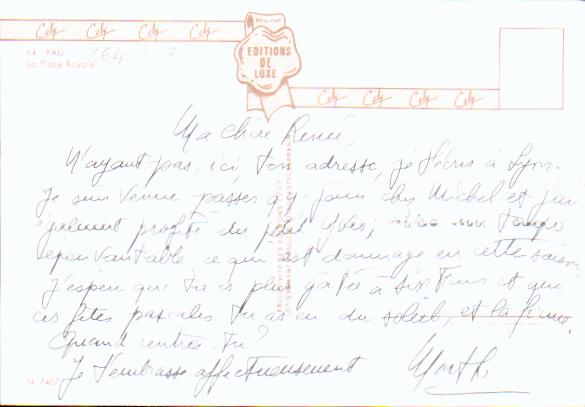 Cely Cely Cely Cely
EDITIONS DE LUXE
64 - PAU
La Place Royale
Cely Cely Cely Cely
Ma chère Renée,
N'ayant pas, ici, ton adresse, je t'écris à Lyon.
Je suis venue passer q.q. jours chez Michel et j'ai
également profité du petit Yves, avec un temps
épouvantable ce qui est dommage en cette saison
J'espère que tu es plus gâtée à et que
ces fêtes pascales tu as eu du soleil, et la forme.
Quand rentres-tu?
Je t'embrasse affectueusement
N. 7407